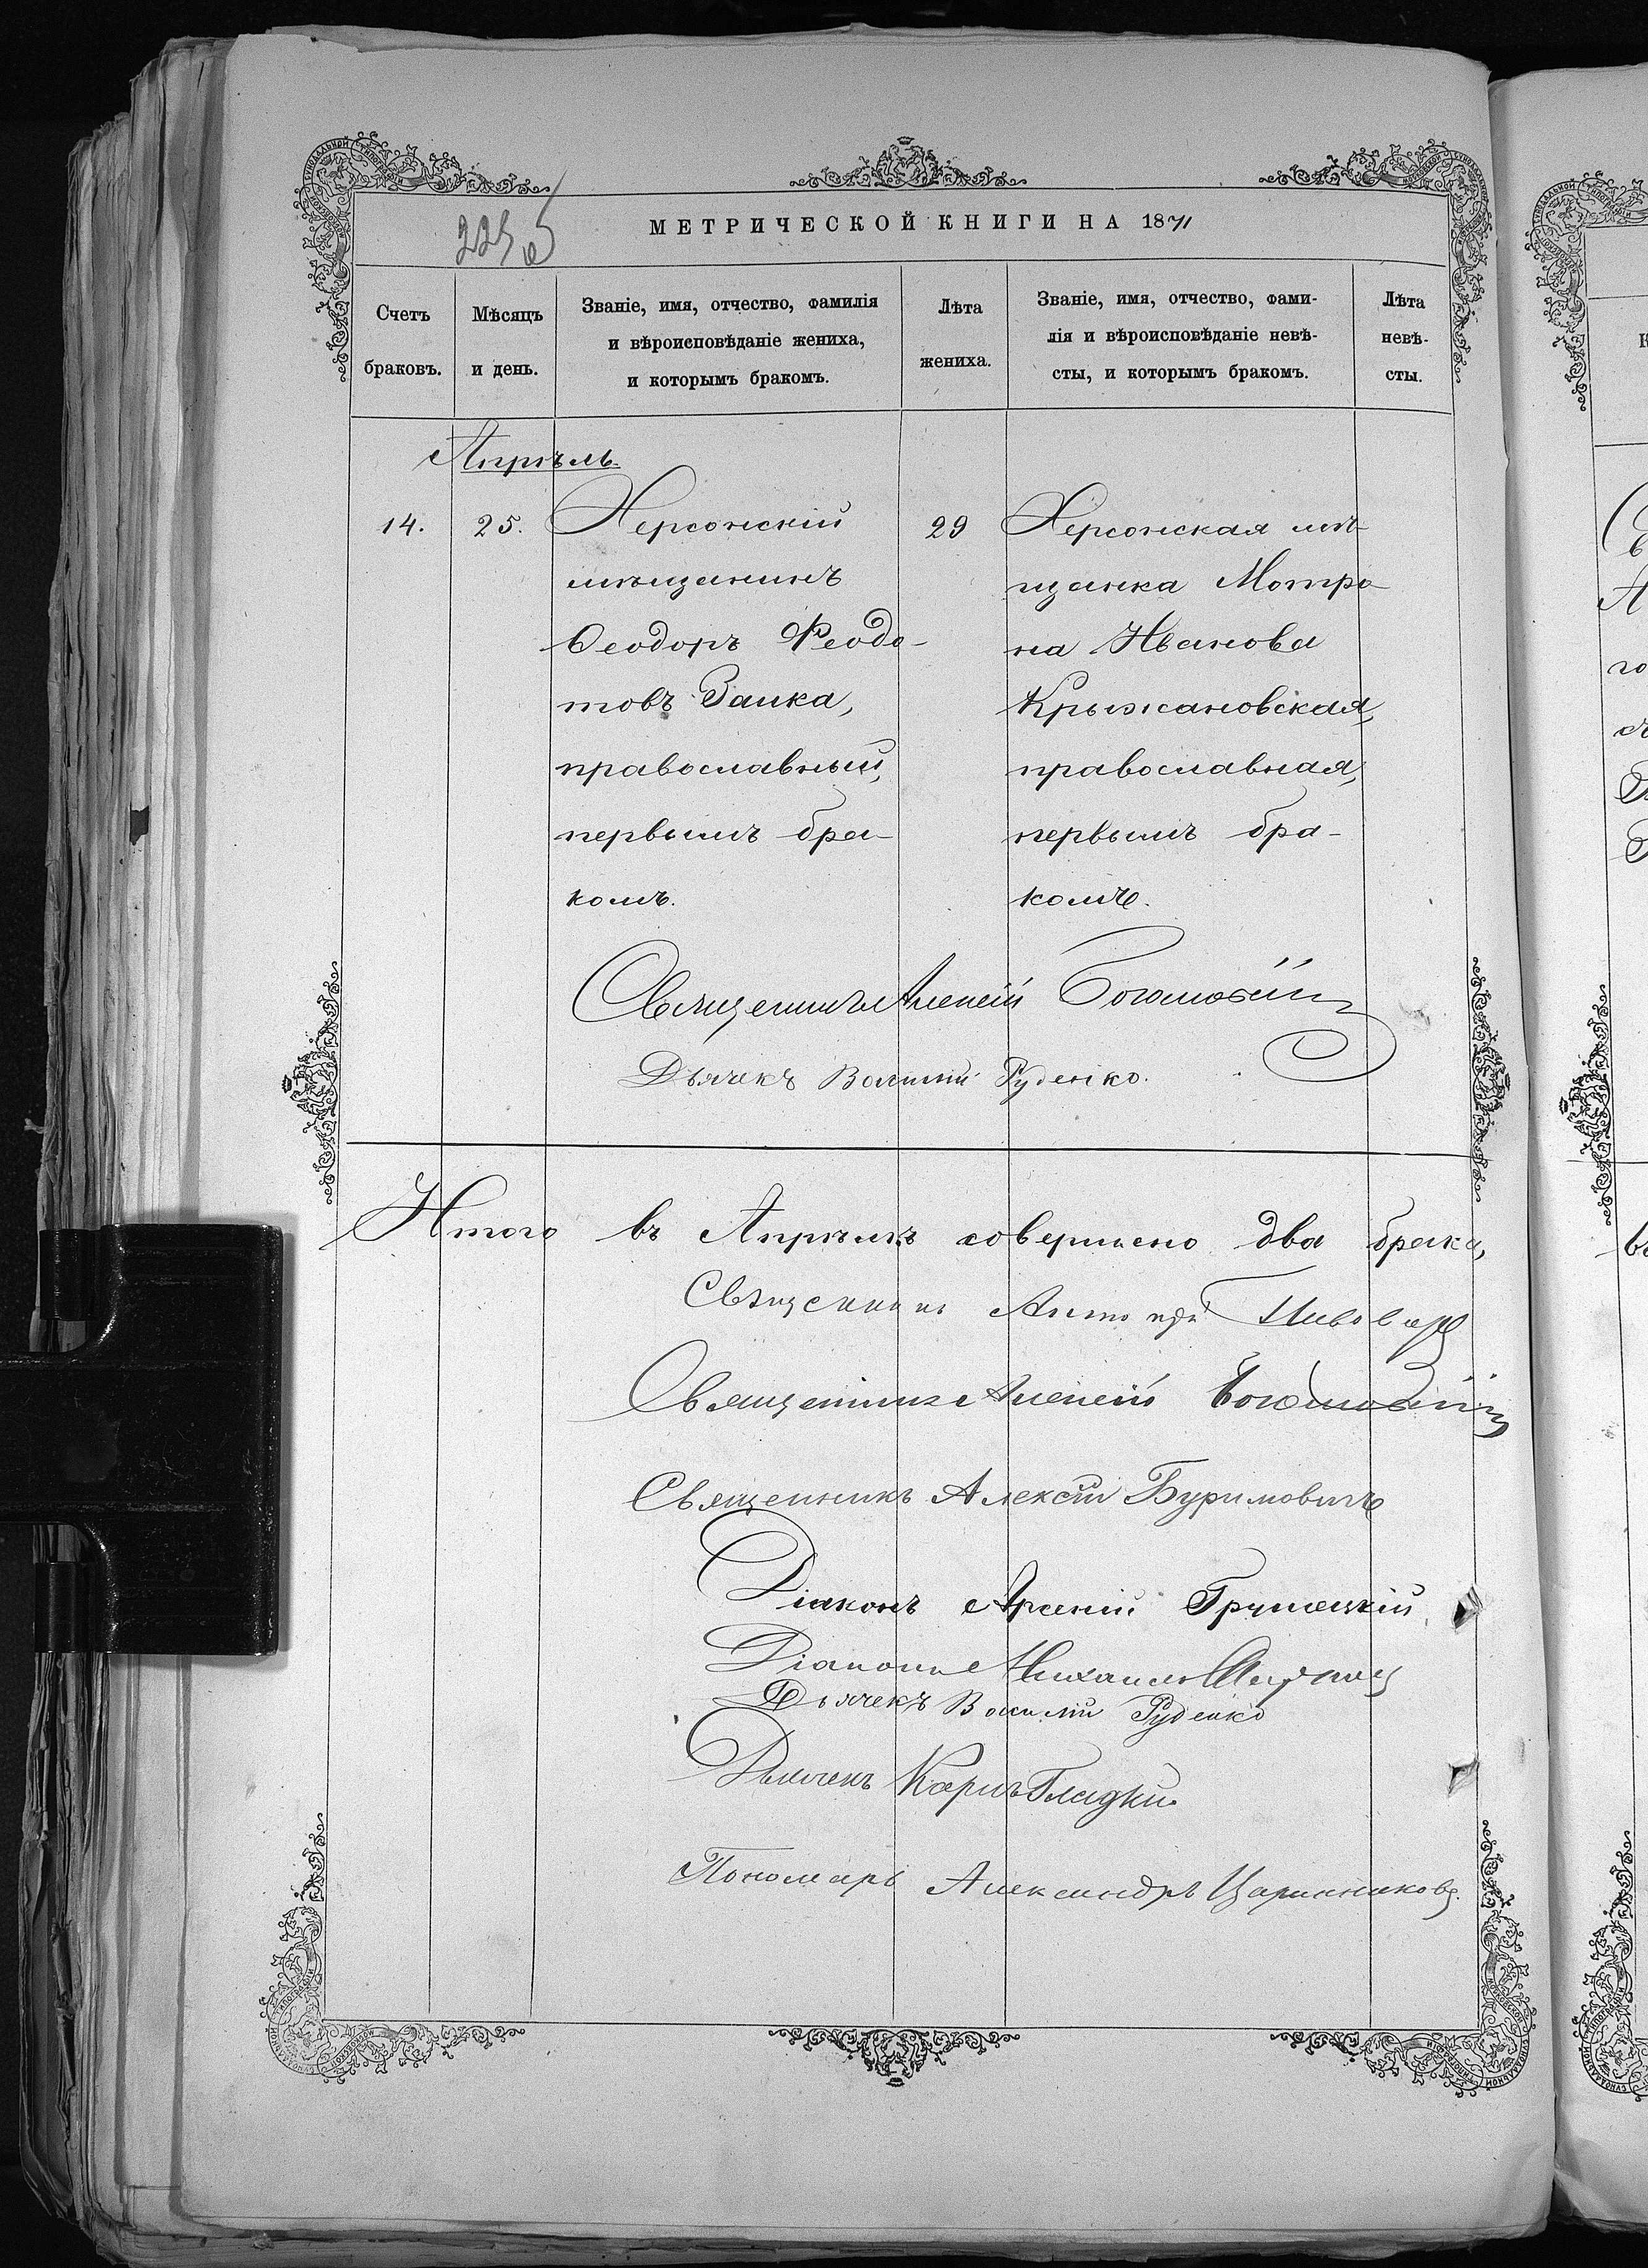 МЕТРИЧЕСКОЙ КНИГИ НА 1871
Счетъ браковъ.
Мѣсяцъ и день.
Званіе, имя, отчество, фамилія
и вѣроисповѣданіе жениха,
и которымъ бракомъ.
Лѣта жениха.
Званіе, имя, отчество, фами-
лія и вѣроисповѣданіе невѣ-
сты, и которымъ бракомъ.
Лѣта невѣ-
сты.
Апрѣль
14.
25.
Херсонскій
мѣщанинъ
Ѳеодоръ Феодо-
товъ Заика,
православный,
первымъ бра-
комъ.
29
Херсонская мѣ-
щанка Мотро-
на Иванова
Крыжановская,
православная,
первымъ бра-
комъ.
Священникъ Алексій
Дьячекъ Василій Руденко.
Итого въ Апрѣлѣ совершено два брака,
Священникъ Пивовар
Священникъ Алексій
Священникъ Алексій Буримовичъ
Діаконъ Арсеній
Діаконъ Михаилъ
Дьячекъ Василій Руденко
Дьячекъ Карпъ Гладкій
Пономарь Александръ Царинниковъ.